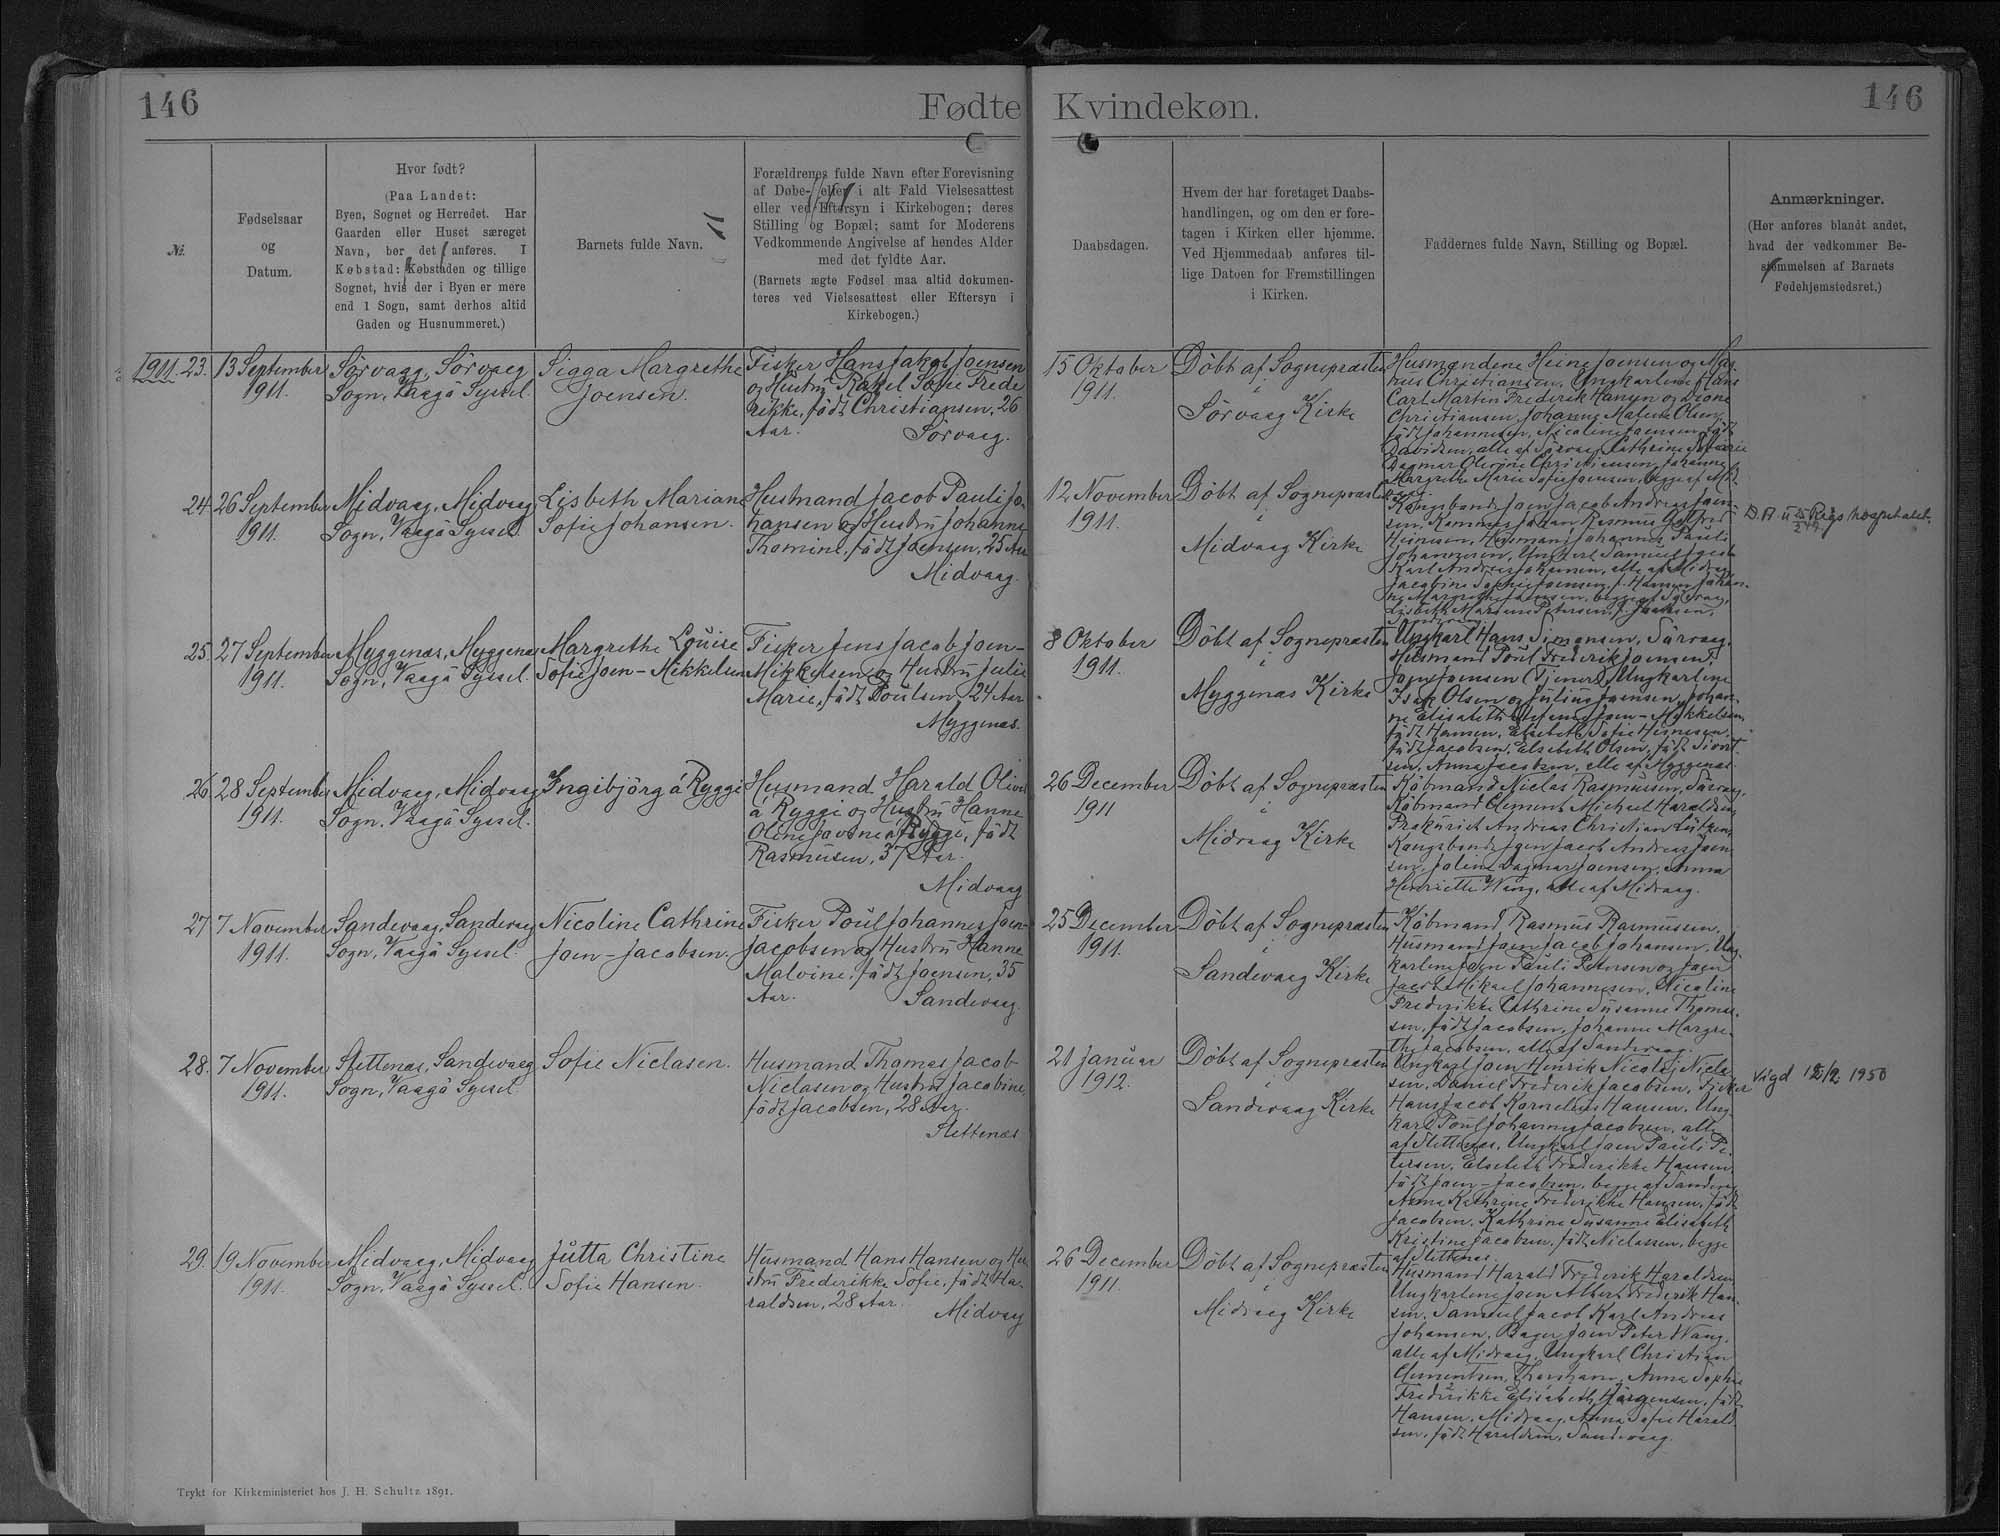 146
Fødte
Kvindekøn.
146
Nr.
Fødselsaar
og
Datum.
Hvor født?
(Paa Landet:
Byen, Sognet og Herredet. Har
Gaarden eller Huset særeget
Navn, bør det anføres. I
Købstad: Købstaden og tillige
Sognet, hvis der i Byen er mere
end 1 Sogn, samt derhos altid
Gaden og Husnummeret.)
Barnets fulde Navn.
Forældrenes fulde Navn efter Forevisning
af Døbe- eller i alt Fald Vielsesattest
eller ved Eftersyn i Kirkebogen; deres
Stilling og Bopæl; samt for Moderens
Vedkommende Angivelse af hendes Alder
med det fyldte Aar.
(Barnets ægte Fødsel maa altid dokumen-
teres ved Vielsesattest eller Eftersyn i
Kirkebogen.)
Daabsdagen.
Hvem der har foretaget Daabs-
handlingen, og om den er fore-
tagen i Kirken eller hjemme.
Ved Hjemmedaab anføres til-
lige Datoen for Fremstillingen
i Kirken.
Faddernes fulde Navn, Stilling og Bopæl.
Anmærkninger.
(Her anføres blandt andet,
hvad der vedkommer Be-
stemmelsen af Barnets
Fødehjemstedsret.)
1911. 23.
13 September
1911.
Sörvaag, Sörvaag
Sogn, Vaagö Syssel.
Sigga Margrethe
Joensen.
Fisker Hans Jakob Joensen
og Hustru Rakel Sofie Frede
rikke, födt Christiansen, 26
Aar.
Sörvaag.
15 Oktober
1911.
Döbt af Sognepræsten
i
Sörvaag Kirke
Husmændene Heine Joensen og Mag-
nus Christiansen, Ungkarlene Hans
Carl Martin Frederik Hansen og Dione
Christiansen, Johanne Malene Olsen,
födt Johannesen, Nicoline Joensen, födt
Davidsen, alle af Sörvaag, Cathrine Marie
Dagmar Olevine Christiansen, Johanne
Margrethe Marie Sofie Joensen, begge af
24.
26 September
1911.
Midvaag, Midvaag
Sogn, Vaagö Syssel.
Lisbeth Mariane
Sofie Johansen.
Husmand Jacob Pauli Jo-
hansen og Hustru Johanne
Thomine, födt Joensen, 25 Aar
Midvaag.
12 November
1911.
Döbt af Sognepræsten
i
Midvaag Kirke
Kongsbonde Joen Jacob Andreas Joen-
sen, Rasmus Gotfred
Heinesen, Husmand Johannes Pauli
Johannesen, Ungkarl Samuel Jacob
Karl Andreas Johansen, alle af Midvaag,
Jacobine Sophie Joensen, f. Hansen, Johan-
ne Margrethe Joensen, begge af Sörvaag,
Lisbeth Mariane Petersen, f. Joensen,
D.A. Rigshospitalet.
25.
27 September
1911.
Myggenæs, Myggenæs
Sogn, Vaagö Syssel.
Margrethe Louise
Sofie Joen-Mikkelsen
Fisker Jens Jacob Joen-
Mikkelsen og Hustru Julie
Marie, födt Poulsen, 24 Aar
Myggenæs.
8 Oktober
1911.
Döbt af Sognepræsten
i
Myggenæs Kirke
Ungkarl Hans Simonsen, Sörvaag,
Husmand Poul Frederik Joensen,
Joen Joensen (Tjener), Ungkarlene
Isak Olsen og Julius Joensen, Johan-
ne Elisabeth Joen-Mikkelsen,
födt Hansen, Elsebeth Sofie Heinesen,
födt Jacobsen, Elsebeth Olsen, födt Sivert-
sen, Anna Jacobsen, alle af Myggenæs.
26.
28 September
1911.
Midvaag, Midvaag
Sogn, Vaagö Syssel.
Ingibjörg á Ryggi
Husmand Harald Oliver
á Ryggi og Hustru Hanne
Olene Javine á Ryggi, födt
Rasmusen, 37 Aar.
Midvaag
26 December
1911
Döbt af Sognepræsten
i
Midvaag Kirke
Köbmand Niclas Rasmussen, Sörvaag,
Köbmand Clement Michael Haraldsen,
Prokurist Andreas Christian Lützen,
Kongsbonde Joen Jacob Andreas Joen-
sen, Joline Dagmar Joensen, Anna
Henriette Wang, alle af Midvaag.
27
7 November
1911.
Sandevaag, Sandevaag
Sogn, Vaagö Syssel.
Nicoline Cathrine
Joen-Jacobsen.
Fisker Poul Johannes Joen-
Jacobsen og Hustru Hanne
Malvine, födt Joensen, 35
Aar.
Sandevaag.
25 December
1911.
Döbt af Sognepræsten
i
Sandevaag Kirke
Köbmand Rasmus Rasmussen,
Husmand Joen Jacob Johansen, Ung-
karlene Joen Pauli Petersen og Joen
Jacob Mikael Johannesen, Nicoline
Frederikke Cathrine Susanne Thomas-
sen, födt Jacobsen, Johanne Margre-
the Jacobsen, alle af Sandevaag.
28.
7 November
1911.
Slettenæs, Sandevaag
Sogn, Vaagö Syssel.
Sofie Niclasen.
Husmand Thomas Jacob
Niclasen og Hustru Jacobine,
födt Jacobsen, 28 Aar.
Slettenæs
21 Januar
1912.
Döbt af Sognepræsten
i
Sandevaag Kirke
Ungkarl Joen Henrik Nicolaj Nicla-
sen, Daniel Frederik Jacobsen, Fisker
Hans Jacob Kornelius Hansen, Ung-
karl Poul Johannes Jacobsen, alle
af Slettenæs, Ungkarl Joen Pauli Pe-
tersen, Elsebeth Frederikke Hansen,
födt Joen-Jacobsen, begge af Sandevaag
Anna Kathrine Frederikke Hansen, födt
Jacobsen, Kathrine Susanne Elisabeth
Kristine Jacobsen, födt Niclassen, begge
af Slettenæs.
Vigd 12/2 1950
29.
19 November
1911.
Midvaag, Midvaag
Sogn, Vaagö Syssel.
Jutta Christine
Sofie Hansen.
Husmand Hans Hansen og Hu-
stru Frederikke Sofie, födt Ha-
raldsen, 28 Aar.
Midvaag
26 December
1911.
Döbt af Sognepræsten
i
Midvaag Kirke
Husmand Harald Frederik Haraldsen
Ungkarlene Joen Albert Frederik Han-
sen, Samuel Jacob Karl Andreas
Johansen, Bager Joen Peter Wang,
alle af Midvaag, Ungkarl Christian
Clementsen, Thorshavn, Anna Sophie
Frederikke Elisabeth Jörgensen, födt
Hansen, Midvaag, Anna Sofie Harald-
sen, födt Haraldsen, Sandevaag.
Trykt for Kirkeministeriet hos J. H. Schultz 1891.